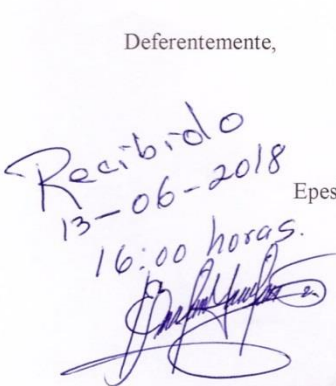 Deferentemente,
Recibido
13-06-2018
Epes
16:00 horas.